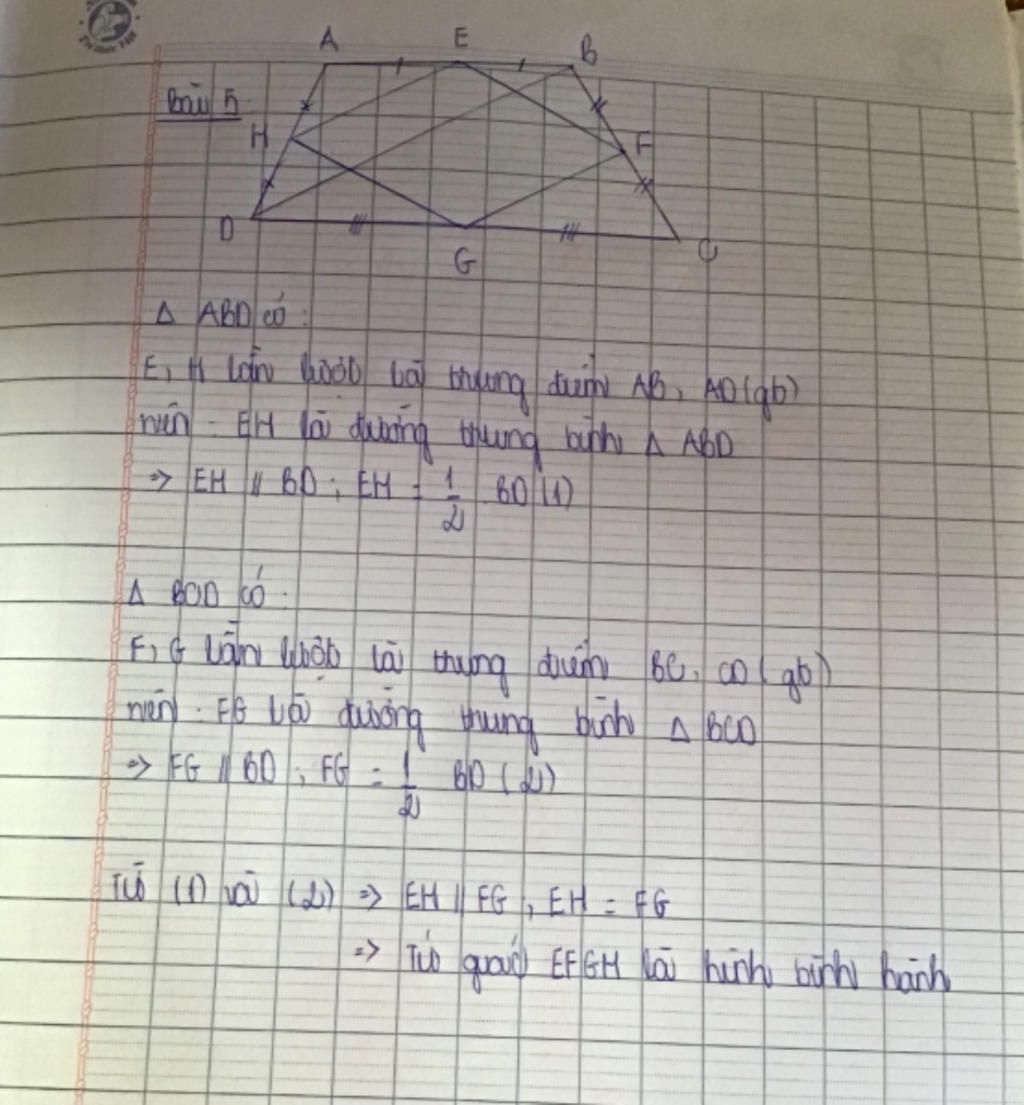 A E B
Bài 5
H F
D G C
Δ ABD có:
E, H lần lượt là trung điểm AB, AD (gt)
nên EH là đường trung bình Δ ABD
=> EH // BD ; EH = 1/2 BD (1)
Δ BCD có:
F, G lần lượt là trung điểm BC, CD (gt)
nên FG là đường trung bình Δ BCD
=> FG // BD ; FG = 1/2 BD (2)
Từ (1) và (2) => EH // FG, EH = FG
=> Tứ giác EFGH là hình bình hành